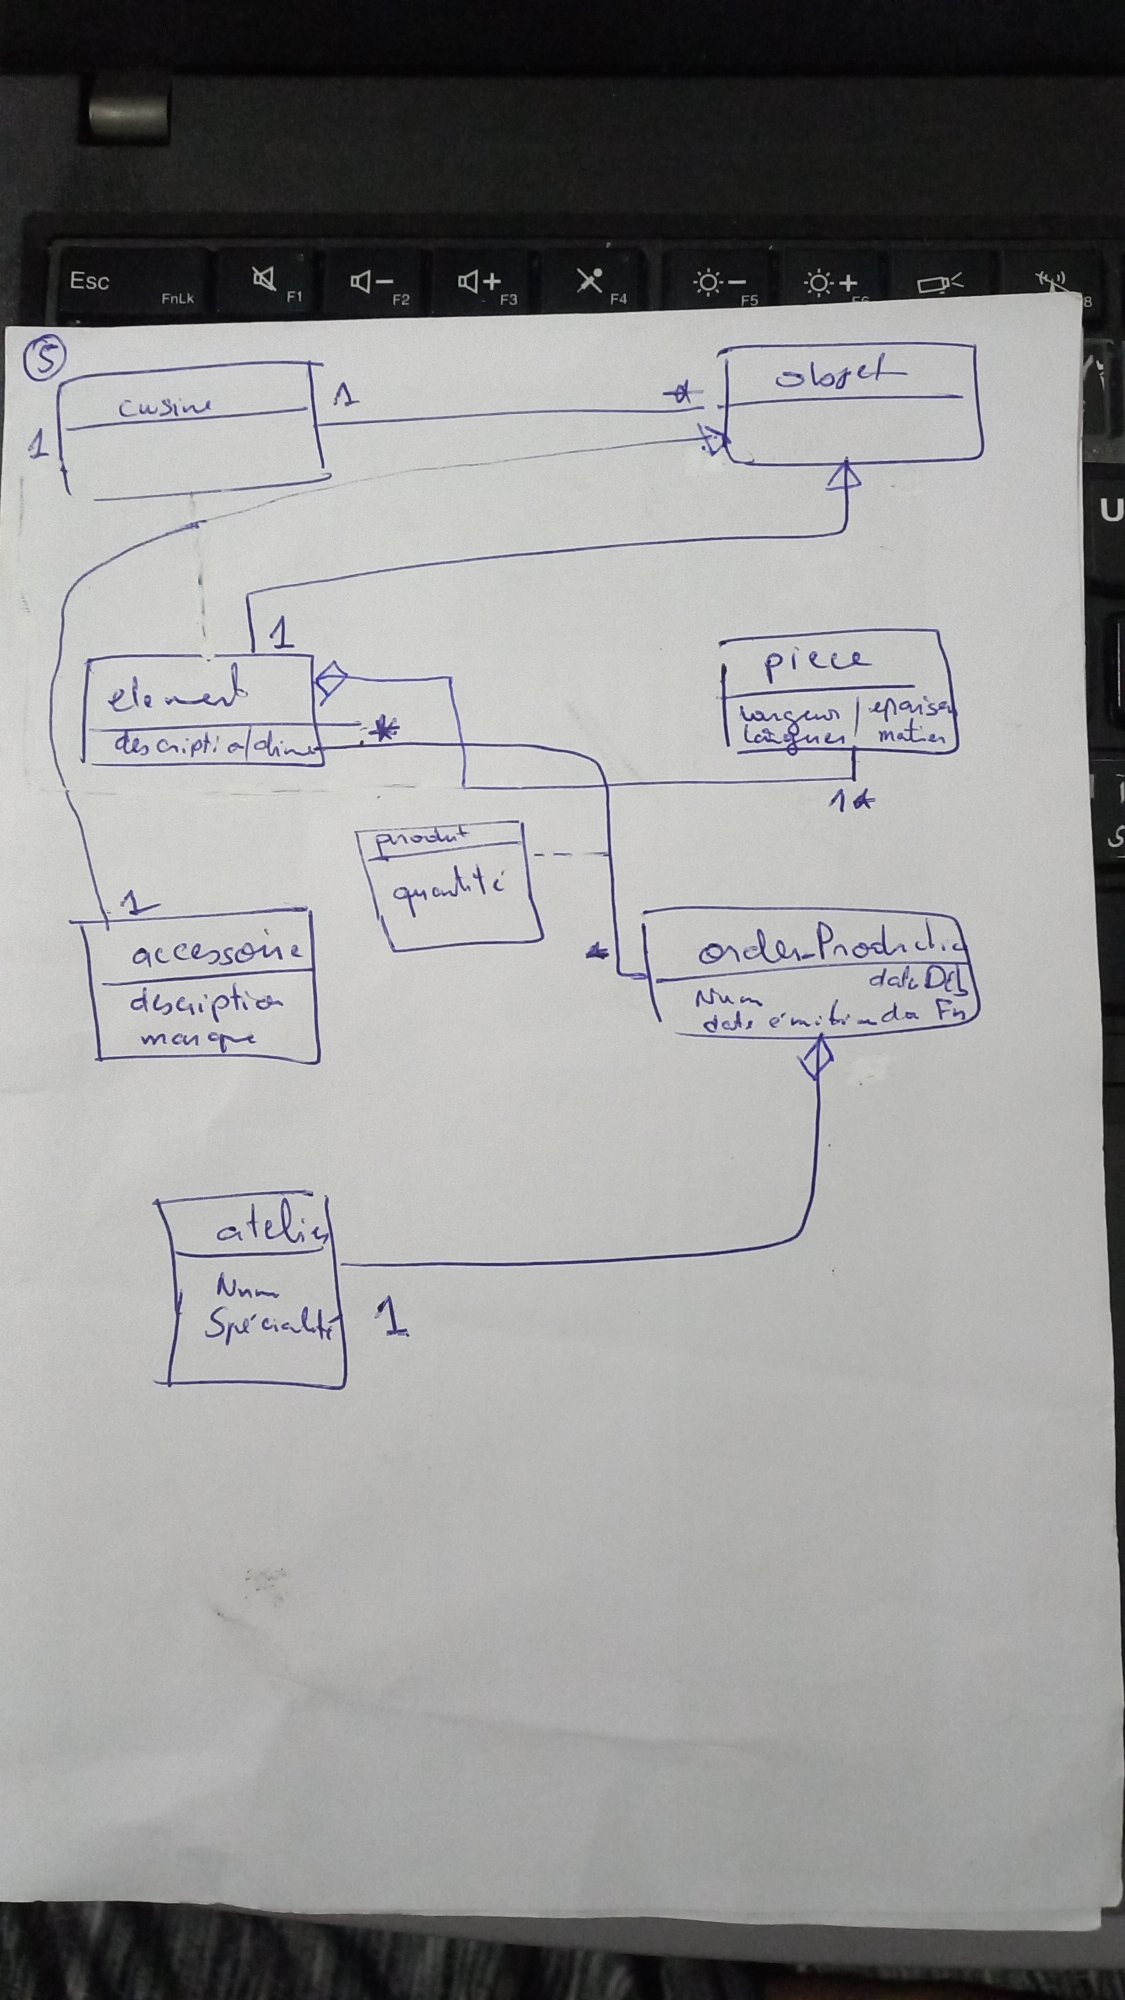 Esc
FnLk
F1
F2
F3
F4
F5
F6
8
U
5
cusine
1
1
*
objet
1
element
description/dime
*
piece
largeur / epaisseur
longueur matier
1*
produit
quantité
1
accessoire
description
marque
*
order_Productio
date Déb
Num
date émition da Fn
atelier
Num
Spécialité
1